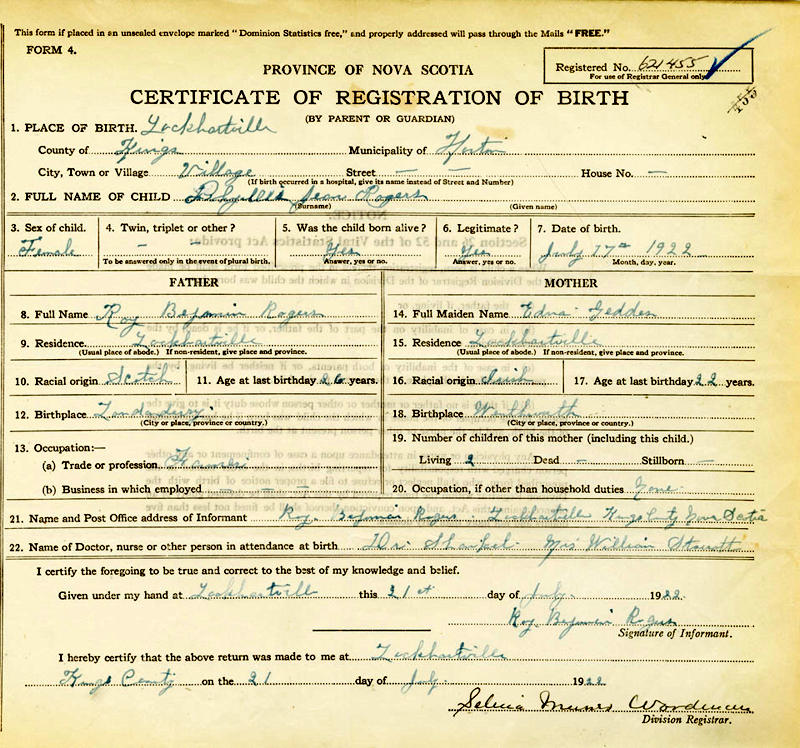 This form if placed in an unsealed envelope marked "Dominion Statistics free," and properly addressed will pass through the Mails "FREE."
FORM 4.
Registered No. 621455
For use of Registrar General only
455
PROVINCE OF NOVA SCOTIA
CERTIFICATE OF REGISTRATION OF BIRTH
(BY PARENT OR GUARDIAN)
1. PLACE OF BIRTH. Lockhartville
County of Kings Municipality of Horton
City, Town or Village Village Street — — House No. —
(If birth occurred in a hospital, give its name instead of Street and Number)
2. FULL NAME OF CHILD Phyllis Jean Rogers
(Surname) (Given name)
3. Sex of child. 4. Twin, triplet or other? 5. Was the child born alive? 6. Legitimate? 7. Date of birth.
Female — — Yes Yes July 17th 1922
To be answered only in the event of plural birth. Answer, yes or no. Answer, yes or no. Month, day, year.
FATHER
8. Full Name Roy Bejamin Rogers
9. Residence Lockhartville
(Usual place of abode.) If non-resident, give place and province.
10. Racial origin Scotch 11. Age at last birthday 26 years.
12. Birthplace Londonderry
(City or place, province or country.)
13. Occupation:—
(a) Trade or profession Farmer
(b) Business in which employed — — —
MOTHER
14. Full Maiden Name Edna Geddes
15. Residence Lockhartville
(Usual place of abode.) If non-resident, give place and province.
16. Racial origin Irish 17. Age at last birthday 22 years.
18. Birthplace Wentworth
(City or place, province or country.)
19. Number of children of this mother (including this child.)
Living 2 Dead — Stillborn —
20. Occupation, if other than household duties None
21. Name and Post Office address of Informant Roy Bejamin Rogers Lockhartville Kings County Nova Scotia
22. Name of Doctor, nurse or other person in attendance at birth Dr Mrs William
I certify the foregoing to be true and correct to the best of my knowledge and belief.
Given under my hand at Lockhartville this 21st day of July 1922
Roy Bejamin Rogers
Signature of Informant.
I hereby certify that the above return was made to me at Lockhartville
Kings County on the 21 day of July 1922
Selena
Division Registrar.